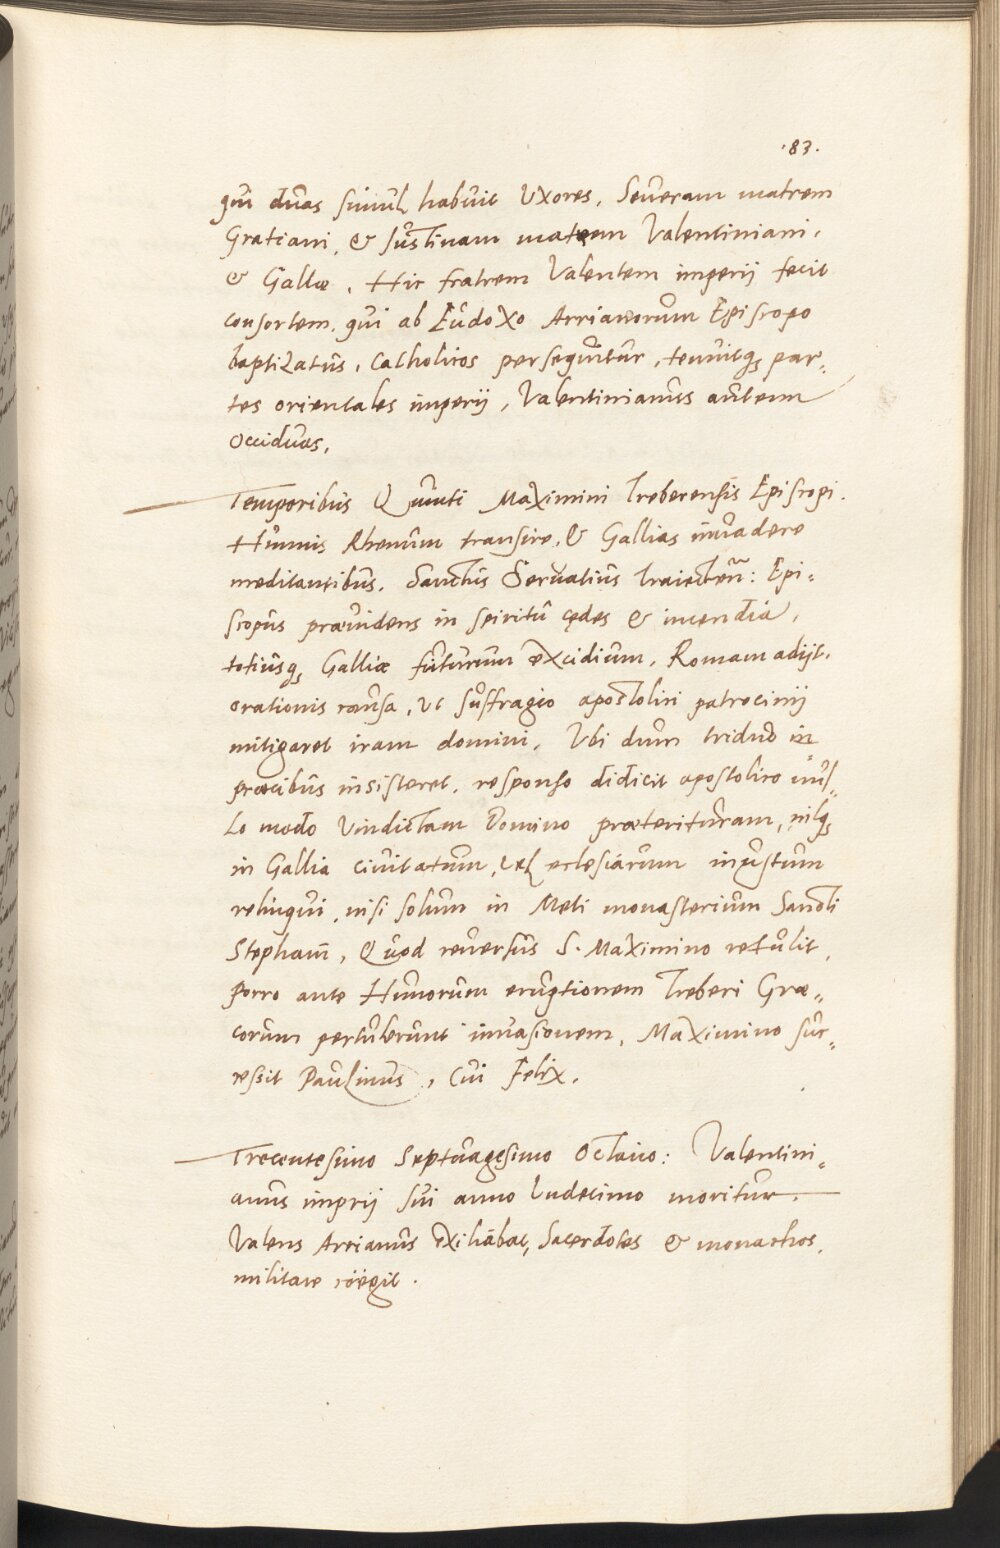 .83.
qui duas simul habuit Uxores, Seueram matrem
Gratiani, & Justinam matrem Valentiniani,
& Gallæ. Hic fratrem Valentem imperij fecit
consortem, qui ab Eudoxo Arrianorum Episcopo
baptizatus, Catholicos persequitur, tenuitq; par-
tes orientales imperij, Valentinianus autem
Occiduas.
Temporibus Quinti Maximini Treberensis Episcopi.
Hunnis Rhenum transire, & Gallias inuadere
meditantibus. Sanctus Seruatius Traiecten: Epi-
scopus præuidens in spiritu cędes & incendia,
totiusq; Galliæ futurum excidium, Romam adijt.
orationis causa, ut suffragio apostolici patrocinij
mitigaret iram domini, Ubi dum triduo in
præcibus insisteret, responso didicit apostolico nul-
lo modo Vindictam Domino præterituram, nilq;
in Gallia ciuitatum, uel ecclesiarum inustum
relinqui, nisi solum in Meti monasterium Sancti
Stephani, Quod reuersus S. Maximino retulit,
Porro ante Hunorum eruptionem Treberi Græ-
corum pertulerunt inuasionem, Maximino suc-
cessit Paulinus, Cui Felix.
Trecentesimo Septuagesimo Octauo: Valentini-
anus imprij sui anno Undecimo moritur.
Valens Arrianus exiliabat, Sacerdotes & monachos,
militare cöegit.